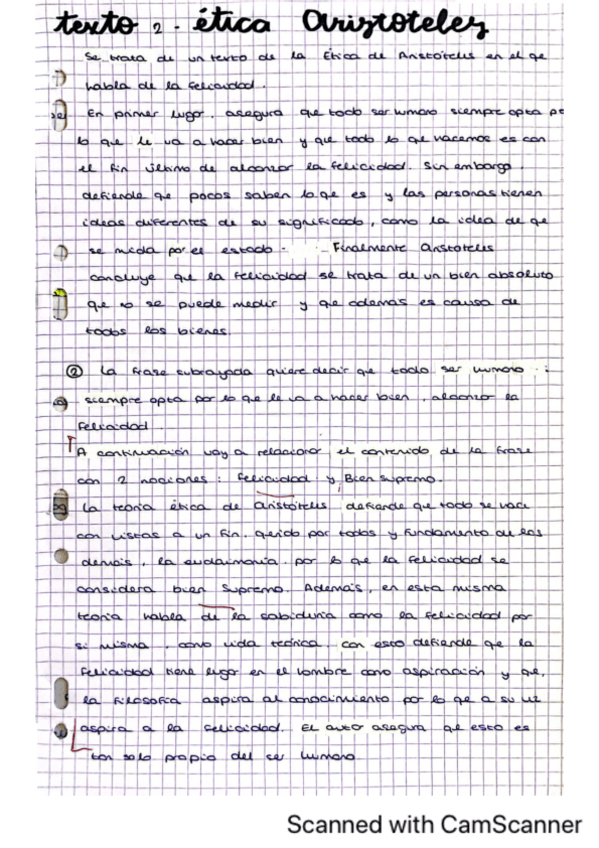 texto 2 - ética Aristoteles
Se trata de un texto de la Ética de Aristóteles en el qe
habla de la felicidad.
En primer lugar, asegura que todo ser humano siempre opta po
lo que le va a hacer bien y que todo lo qe hacemos es con
el fin último de alcanzar la felicidad. Sin embargo,
defiende qe pocos saben lo qe es y las personas tienen
ideas diferentes de su significado, como la idea de qe
se mida por el estado. Finalmente Aristóteles
concluye que la felicidad se trata de un bien absoluto
que no se puede medir y que además es causa de
todos los bienes.
② La frase subrayada quiere decir que todo ser humano
siempre opta por lo que le va a hacer bien, alcanzar la
felicidad.
A continuación voy a relacionar el contenido de la frase
con 2 nociones: Felicidad y Bien Supremo.
La teoría ética de Aristóteles defiende que todo se hace
con vistas a un fin, querido por todos y fundamento de los
demás, la eudaimonia, por lo que la felicidad se
considera bien Supremo. Además, en esta misma
teoría habla de la sabiduría como la felicidad por
si misma, como vida teórica, con esto defiende qe la
felicidad tiene lugar en el hombre como aspiración y que,
la filosofía aspira al conocimiento por lo que a su vez
aspira a la felicidad. El autor asegura qe esto es
tan solo propio del ser humano.
Scanned with CamScanner